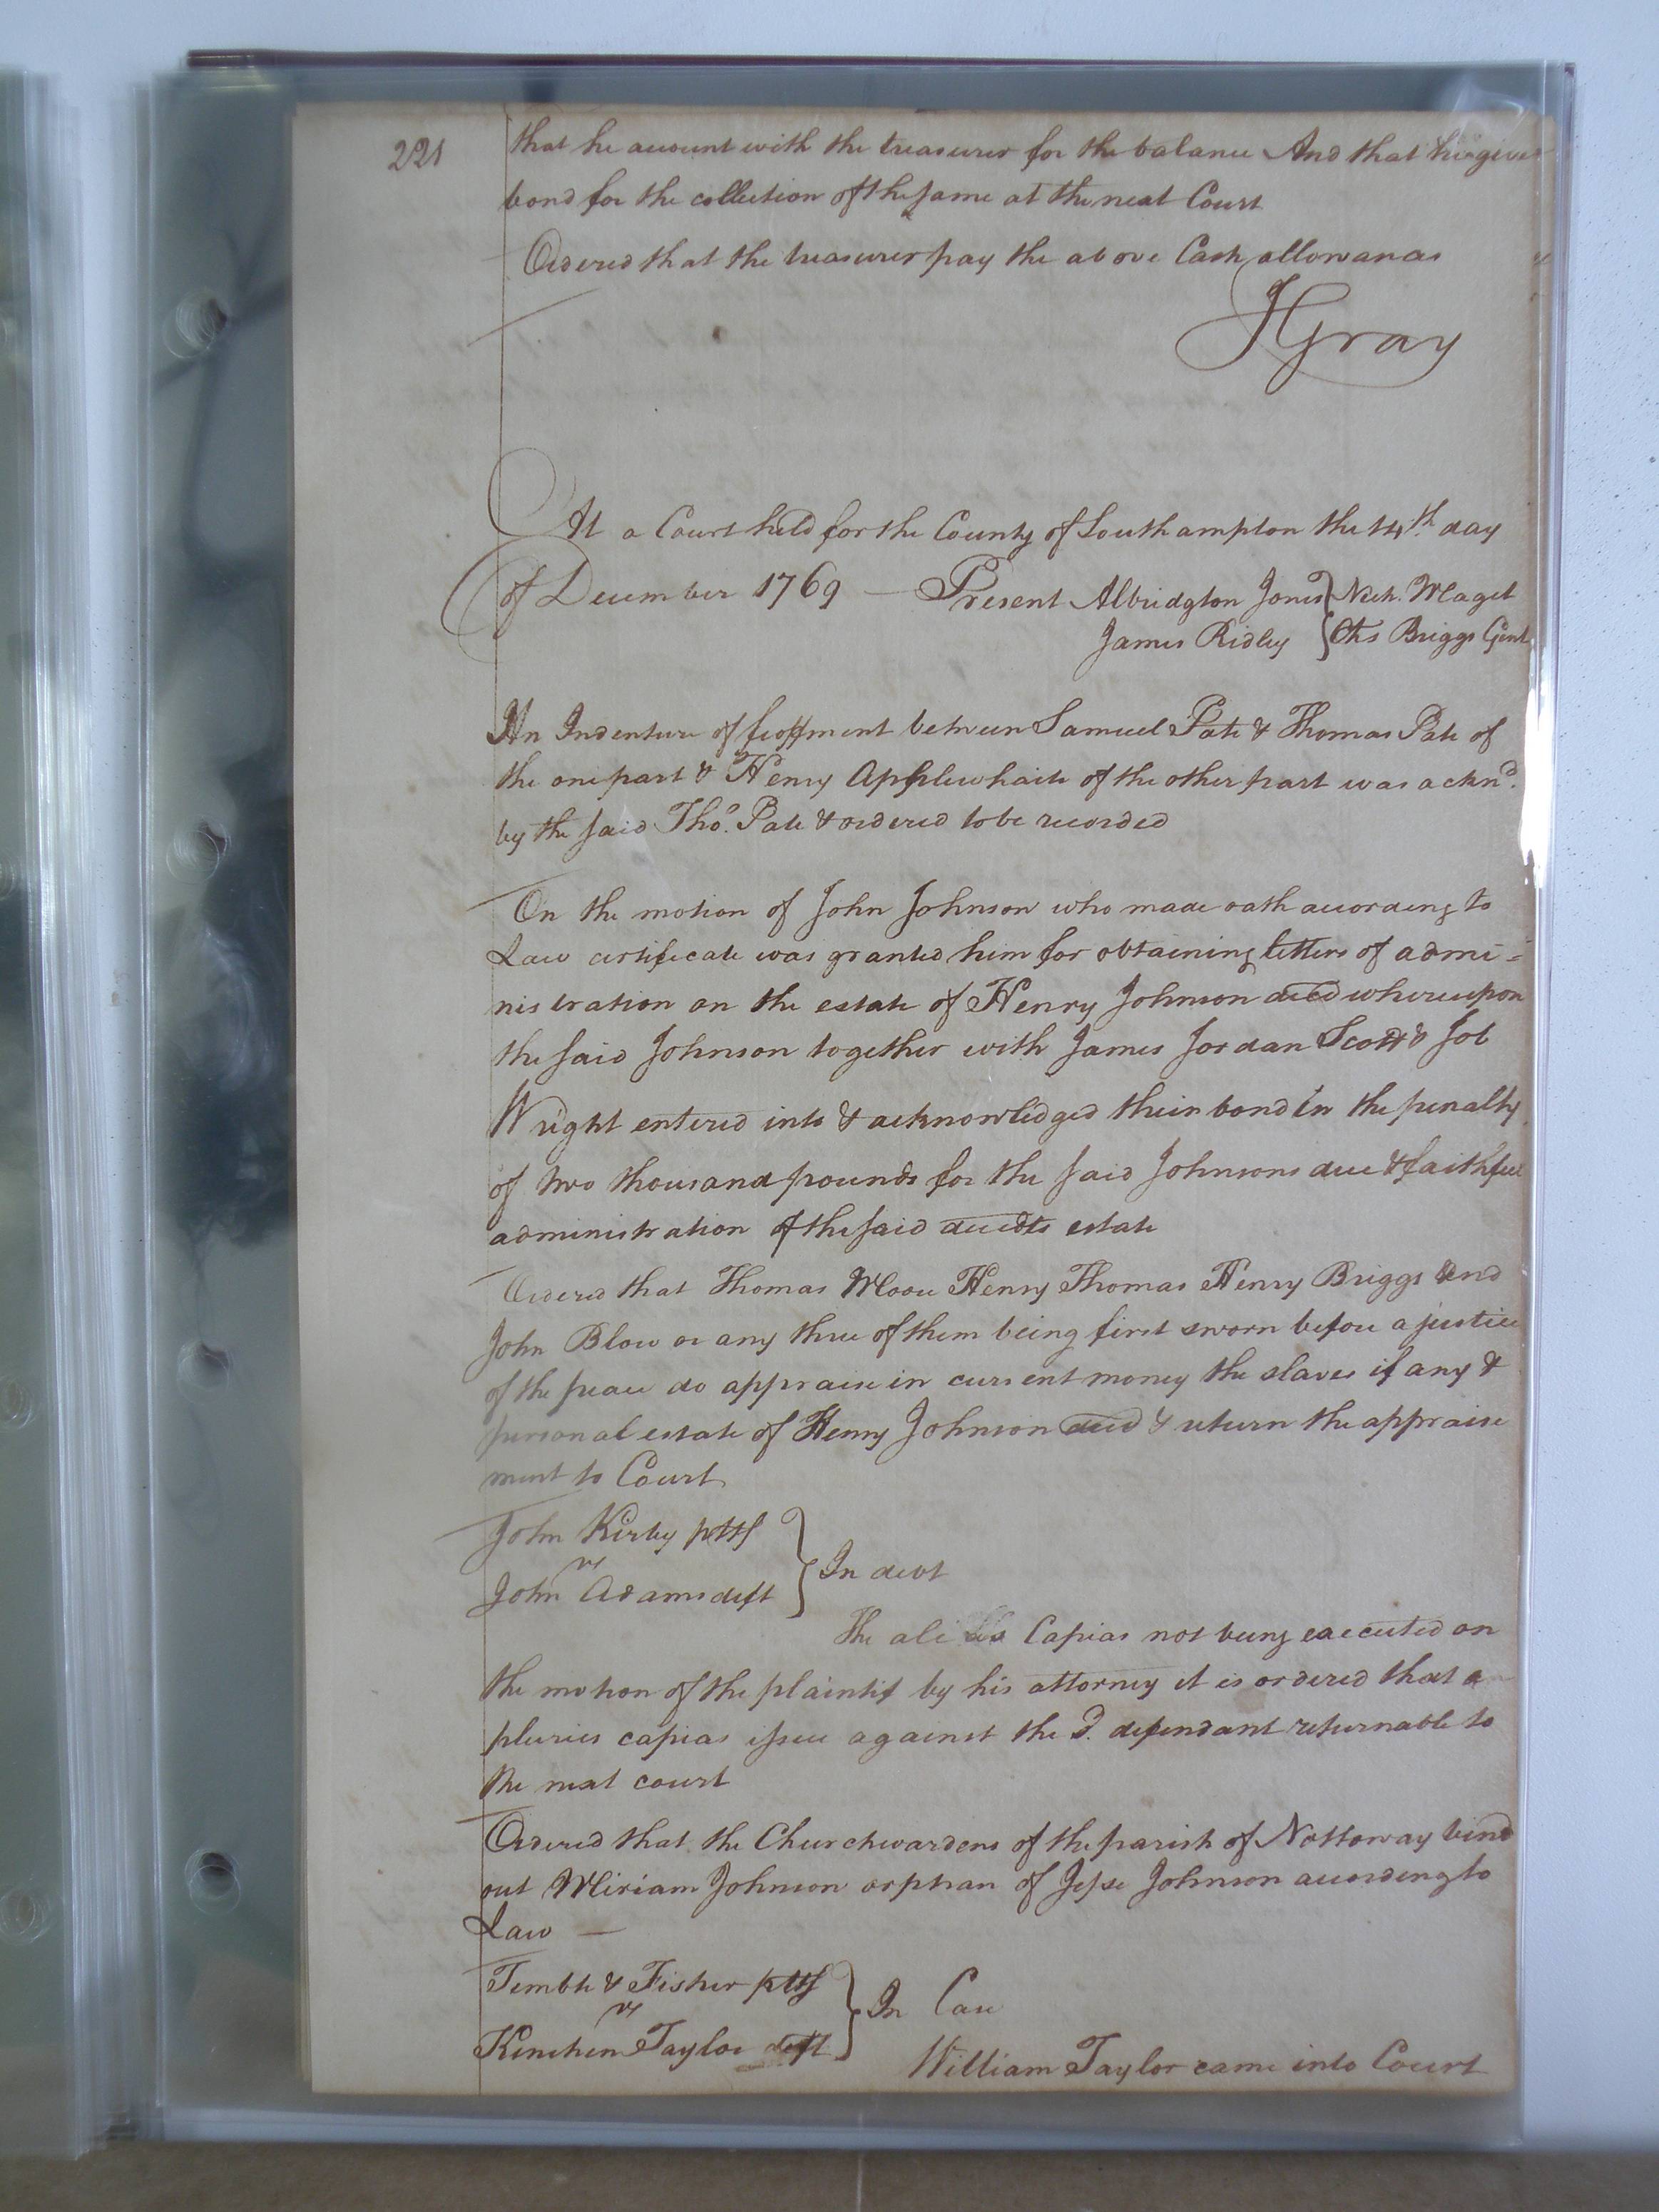 221
that he account with the treasurer for the balance And that he give
bond for the collection of the same at the next Court
Ordered that the treasurer pay the above Cash allowances
JGray
At a Court held for the County of Southampton the 14th day
of December 1769 — Present Albridgton Jones } Nich. Maget
James Ridley } Chs Briggs Gent
An Indenture of feoffment between Samuel Pate & Thomas Pate of
the one part & Henry Applewhaite of the other part was acknd.
by the said Tho. Pate & ordered to be recorded
On the motion of John Johnson who made oath according to
Law certificate was granted him for obtaining letters of admi=
nistration on the estate of Henry Johnson decd whereupon
the said Johnson together with James Jordan Scott & Job
Wright entered into & acknowledged their bond in the penalty
of two thousand pounds for the said Johnsons due & faithful
administration of the said decedts estate
Ordered that Thomas Moore Henry Thomas Henry Briggs and
John Blow or any three of them being first sworn before a justice
of the peace do appraise in current money the slaves if any &
personal estate of Henry Johnson decd & return the appraise
ment to Court
John Kirby pltf
vs
John Adams deft } In debt
The alias Capias not being executed on
the motion of the plaintif by his attorney it is ordered that a
pluries capias issue against the sd. defendant returnable to
the next court
Ordered that the Churchwardens of the parish of Nottoway bind
out Miriam Johnson orphan of Jesse Johnson according to
Law —
Temble & Fisher pltfs
vs
Kinchen Taylor deft } In Case
William Taylor came into Court